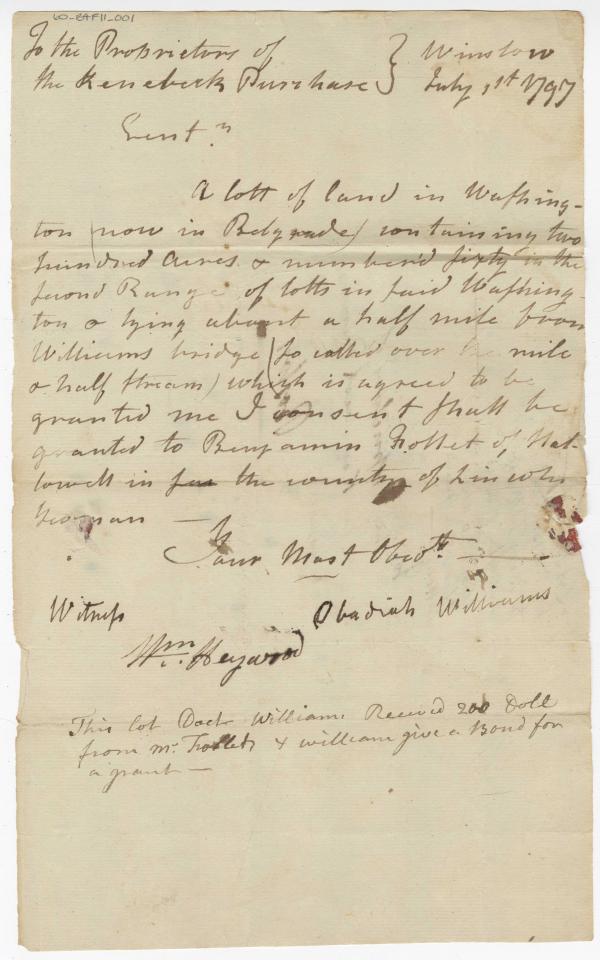 60-EAF11-001
To the Proprietors of } Winslow
the Kenebeck Purchase } July 1st 1797
Gentn
A lott of land in Washing-
ton (now in Belgrade) containing two
hundred Acres & number'd sixty in the
second Range of lotts in said Washing-
ton & lying about a half mile from
Williams bridge (so called over the mile
& half stream) which is agreed to be
granted me I consent shall be
granted to Benjamin Follet of Hal-
lowell in the county of Lincoln
Yeoman —
Your Most Obedt
Witness Obadiah Williams
Wm. Heywood
This Lot Doctr Williams Received 200 Doll
from Mr. & william give a Bond for
a grant —